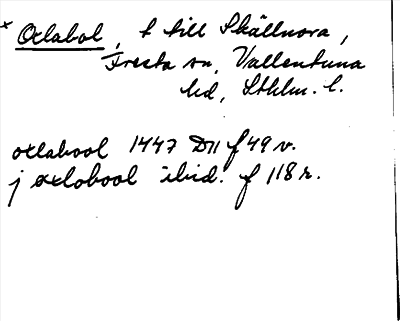 x Oxlabol, t till Skällnora,
Fresta sn, Vallentuna
hd, Sthlm. l.
oxlabool 1447 D11 f 49 v.
j oxlobool ibid. f 118 r.